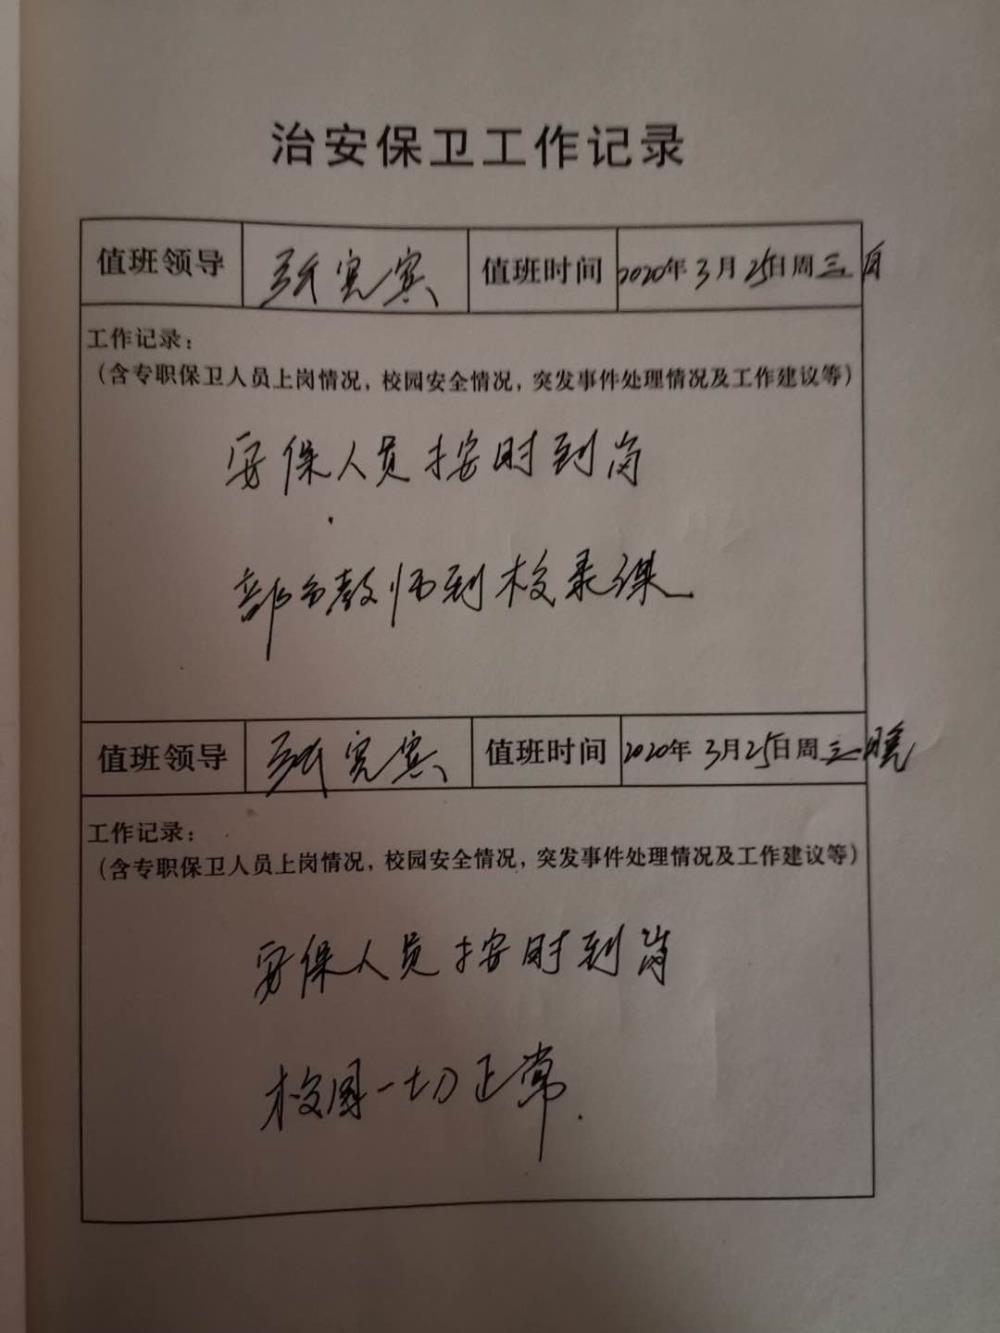 治安保卫工作记录
值班领导 张宪宾 值班时间 2020年3月25日周三
工作记录：
（含专职保卫人员上岗情况，校园安全情况，突发事件处理情况及工作建议等）
安保人员按时到岗
部分教师到校录课
值班领导 张宪宾 值班时间 2020年3月25日周三晚
工作记录：
（含专职保卫人员上岗情况，校园安全情况，突发事件处理情况及工作建议等）
安保人员按时到岗
校园一切正常.